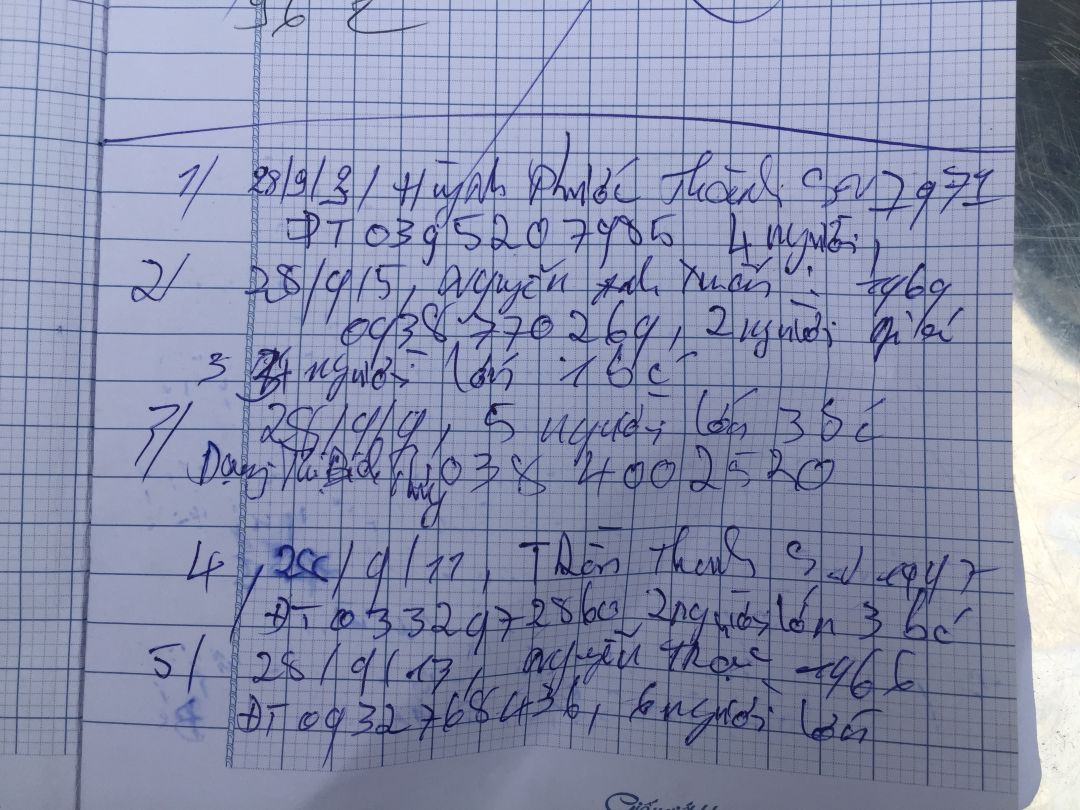 96
1/ 28/9/3/ Huỳnh Phước Thành SN 1971
ĐT 0395207985 4 người,
2/ 28/9/5, Nguyễn Xuân : 1969
0938770269, 2 người già
3 người lớn 1 bé
3/ 28/9/9, 5 người lớn 3 bé
Thị 038 4002520
4, 28/9/11, Trần Thanh S 1947
ĐT 0332972860 2 người lớn 3 bé
5/ 28/9/13, Nguyễn 1966
ĐT 0932768436, 6 người lớn